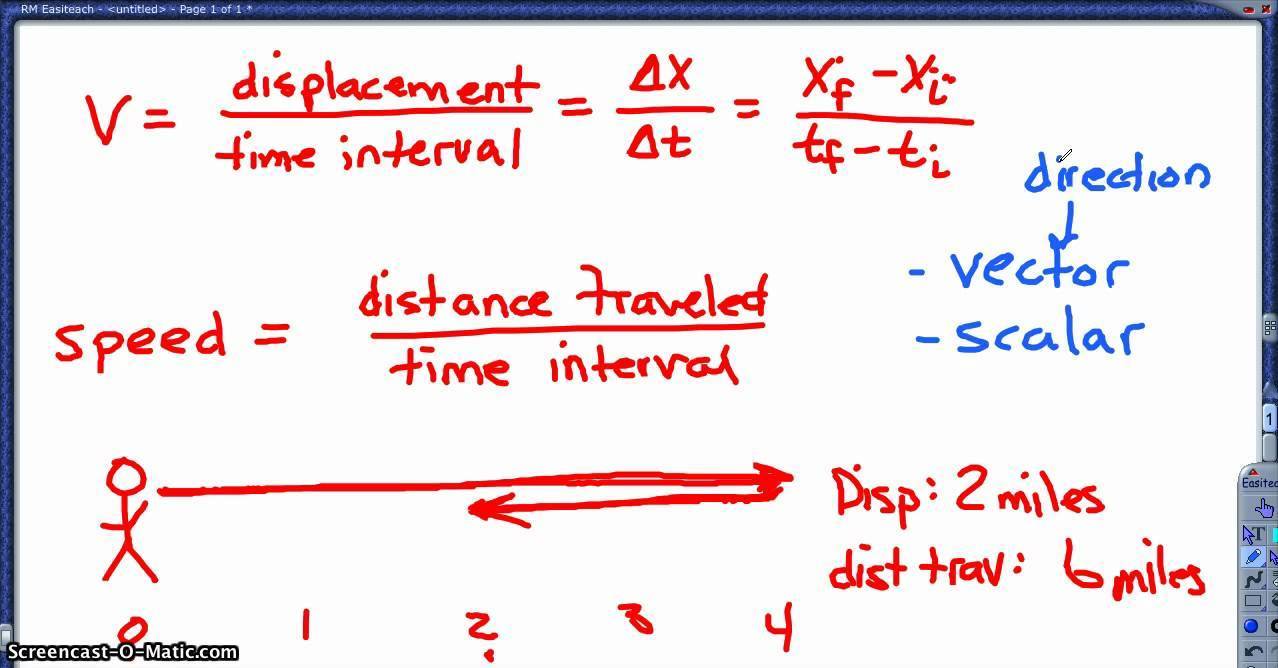 RM Easiteach - <untitled> - Page 1 of 1 *
V = displacement / time interval = Δx / Δt = xf - xi / tf - ti
direction
- vector
speed = distance traveled / time interval
- scalar
Disp: 2 miles
dist trav: 6 miles
0 1 2 3 4
1
Easitea
T
Screencast-O-Matic.com